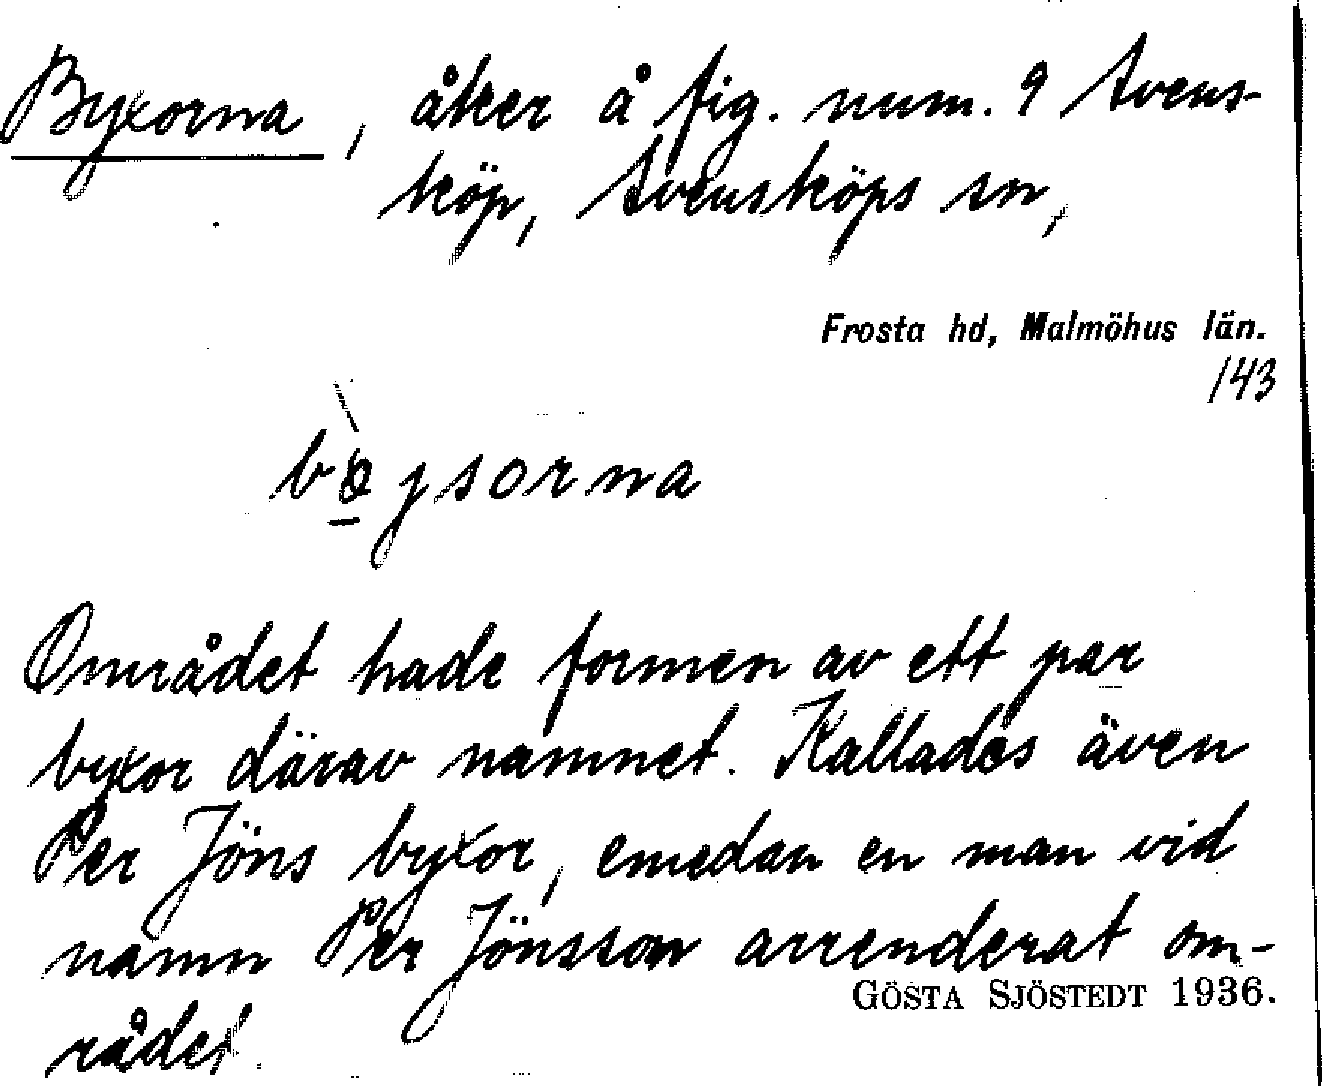 Byxorna, åker å fig. num. 9 Svens-
köp, Svensköps sn,
Frosta hd, Malmöhus län.
143
bøysorna
Området hade formen av ett par
byxor därav namnet. Kallades även
Per Jöns byxor, emedan en man vid
namn Per Jönsson arrenderat om-
GÖSTA SJÖSTEDT 1936.
rådet.